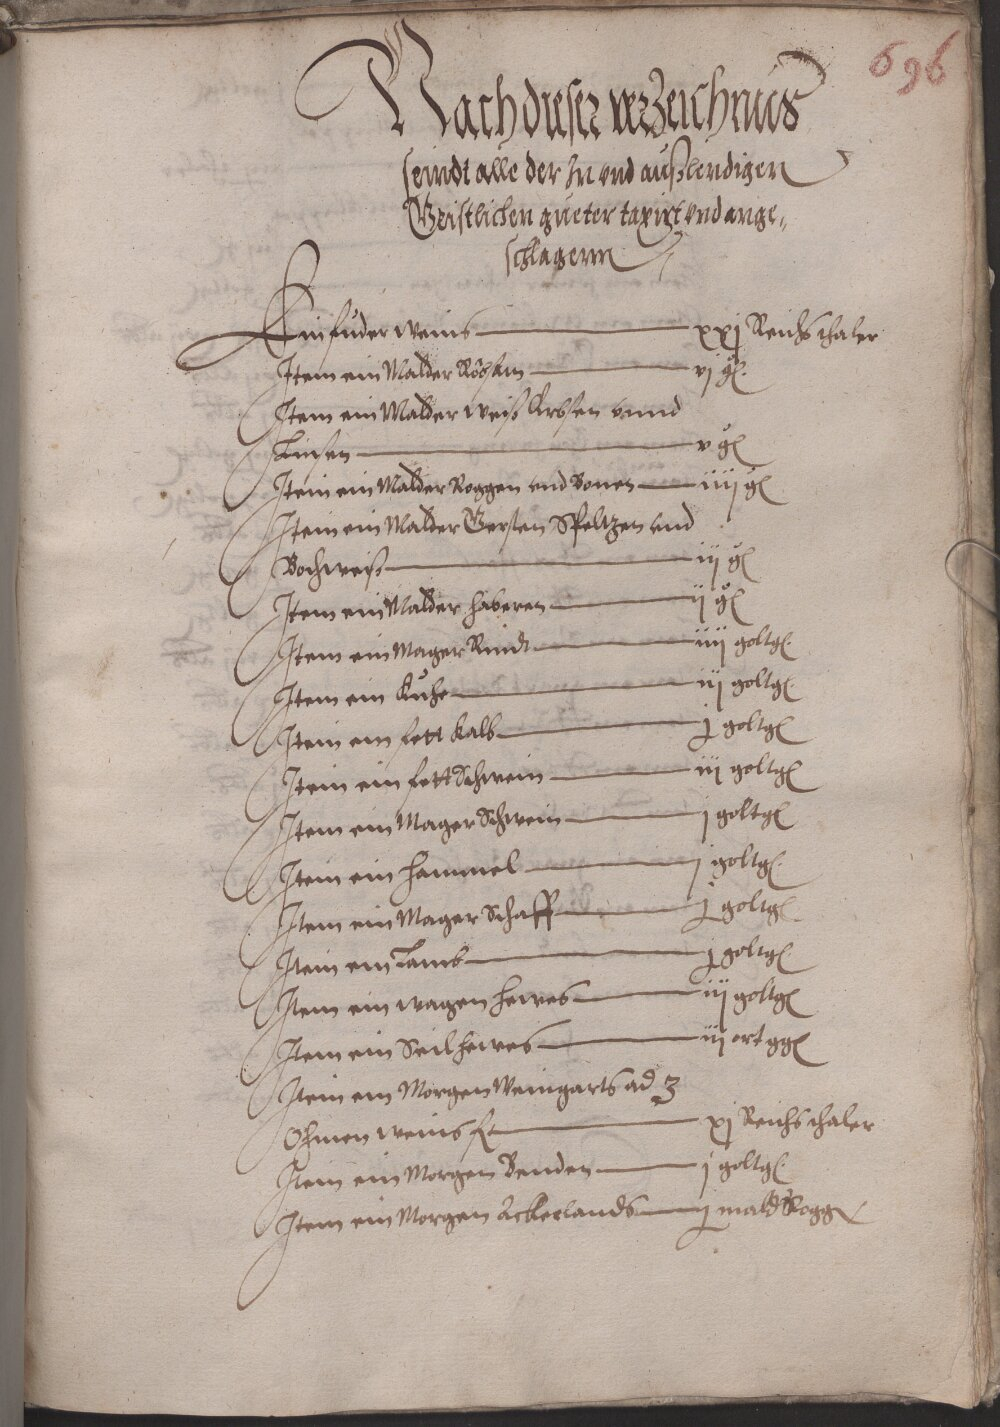 696
Nach dieser verzeichnus
seindt alle der In vnd außlendigen
Geistlichen güeter taxirt vnd ange„
schlagenn
Ein fuder weins xxj Reichsthaler
Item ein Malder vj gl.
Item ein Malder weiß Erbsen vnnd
Linsen v gl
Item ein Malder Roggen vnd Bonen iiij gl
Item ein Malder Gersten Speltzen vnd
Bochweiß iij gl
Item ein Malder haberen ij gl
Item ein Mager Rindt iiij goltgl.
Item ein Kuhe iij goltgl.
Item ein fett Kalb j goltgl
Item ein fett Schwein iij goltgl
Item ein Mager Schwein j goltgl
Item ein Hammel j goltgl.
Item ein Mager Schaff j goltgl
Item ein Lamb j goltgl.
Item ein wagen hewes iij goltgl
Item ein Seil hewes iij ort ggl
Item ein Morgen Weingarts ad 3
Ohmen weins xj Reichsthaler
Item ein Morgen Benden j goltgl.
Item ein Morgen Ackerlands j mald Rogg